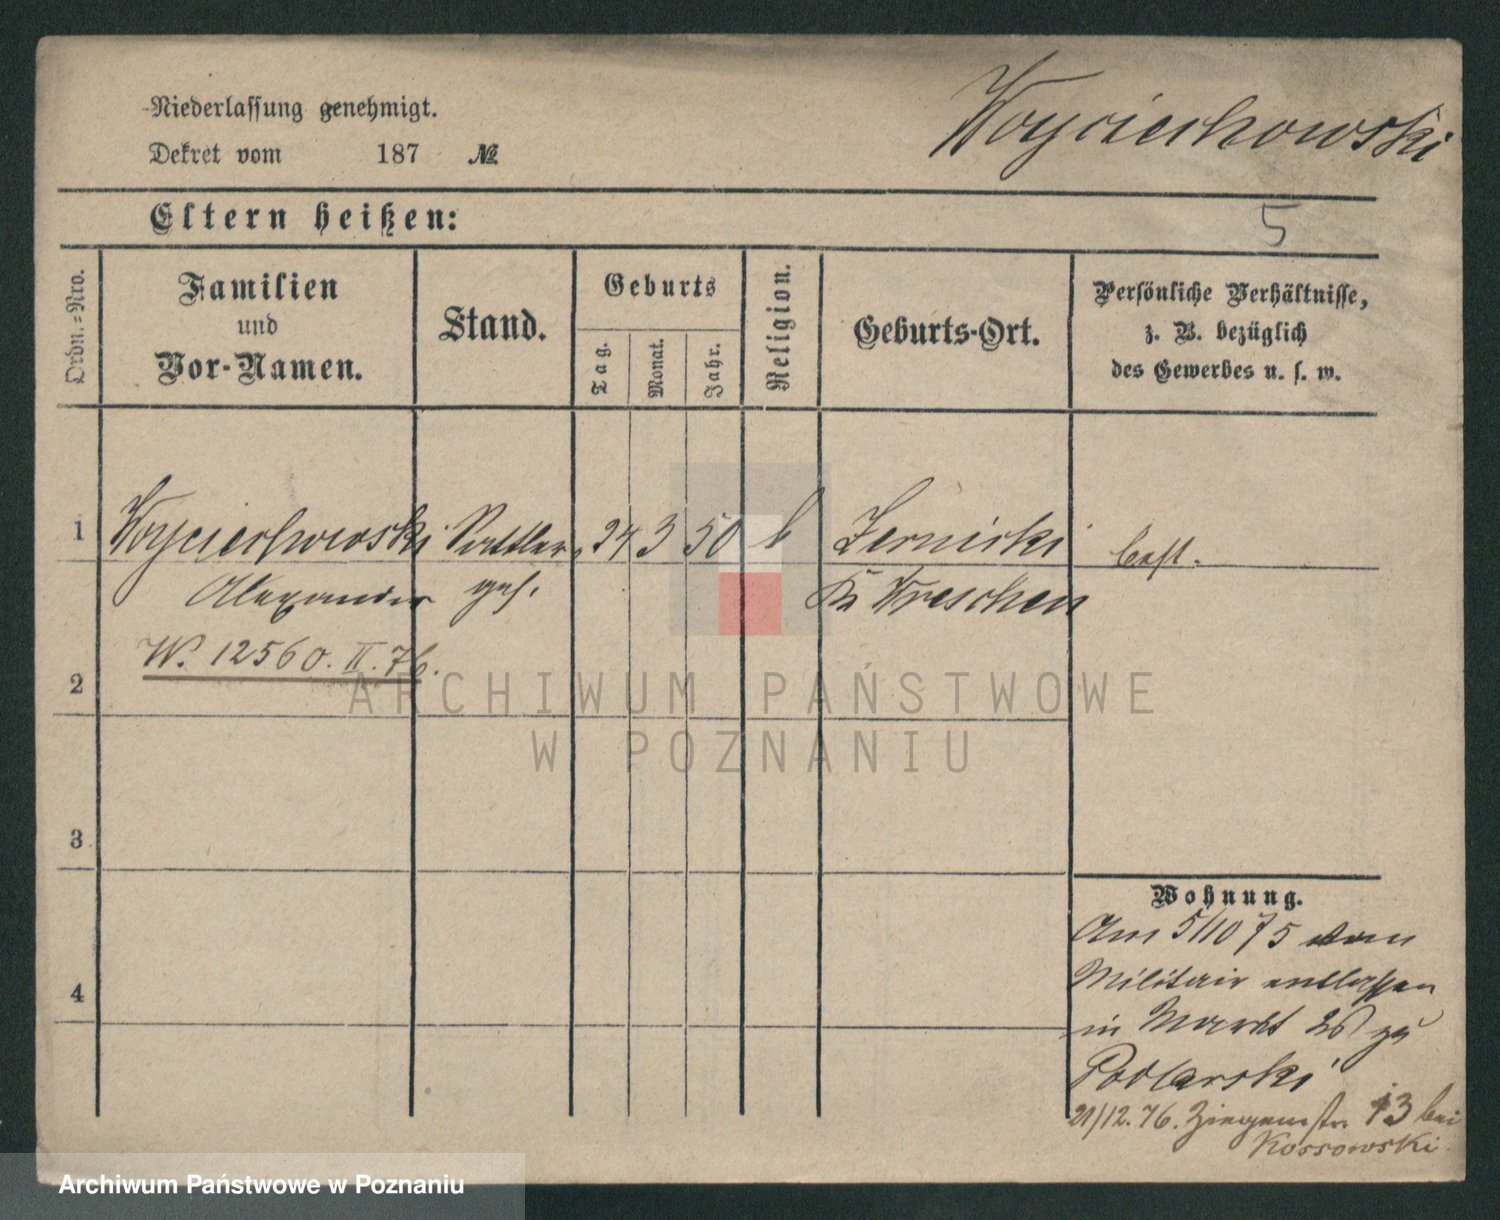 Niederlassung genehmigt.
Dekret vom 187 №
Woyciechowski
Eltern heißen:
5
Ordn.-Nro.
Familien
und
Vor-Namen.
Stand.
Geburts
Tag.
Monat.
Jahr.
Religion.
Geburts-Ort.
Persönliche Verhältnisse,
z. B. bezüglich
des Gewerbes u. s. w.
1 Woyciechowski Sattler 24 3 50 Zernicki
Alexander Kr Wreschen
W. 12560. II. 76.
2
3
4
Wohnung.
Am 5/10 75 vom
Militair entlassen
in Markt zu
21/12. 76. 13 bei
Kossowski
ARCHIWUM PAŃSTWOWE
W POZNANIU
Archiwum Państwowe w Poznaniu